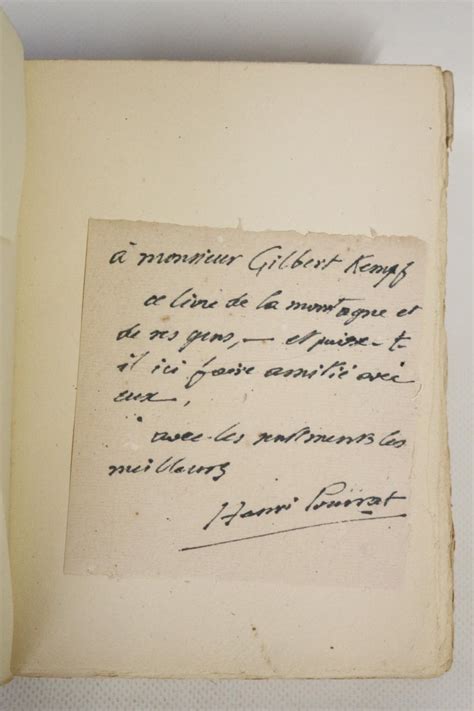 à monsieur Gilbert Kempf
ce livre de la montagne et
de ses gens, — et puisse-t
il ici faire amitié avec
eux,
avec les sentiments les
meilleurs
Henri Pourrat